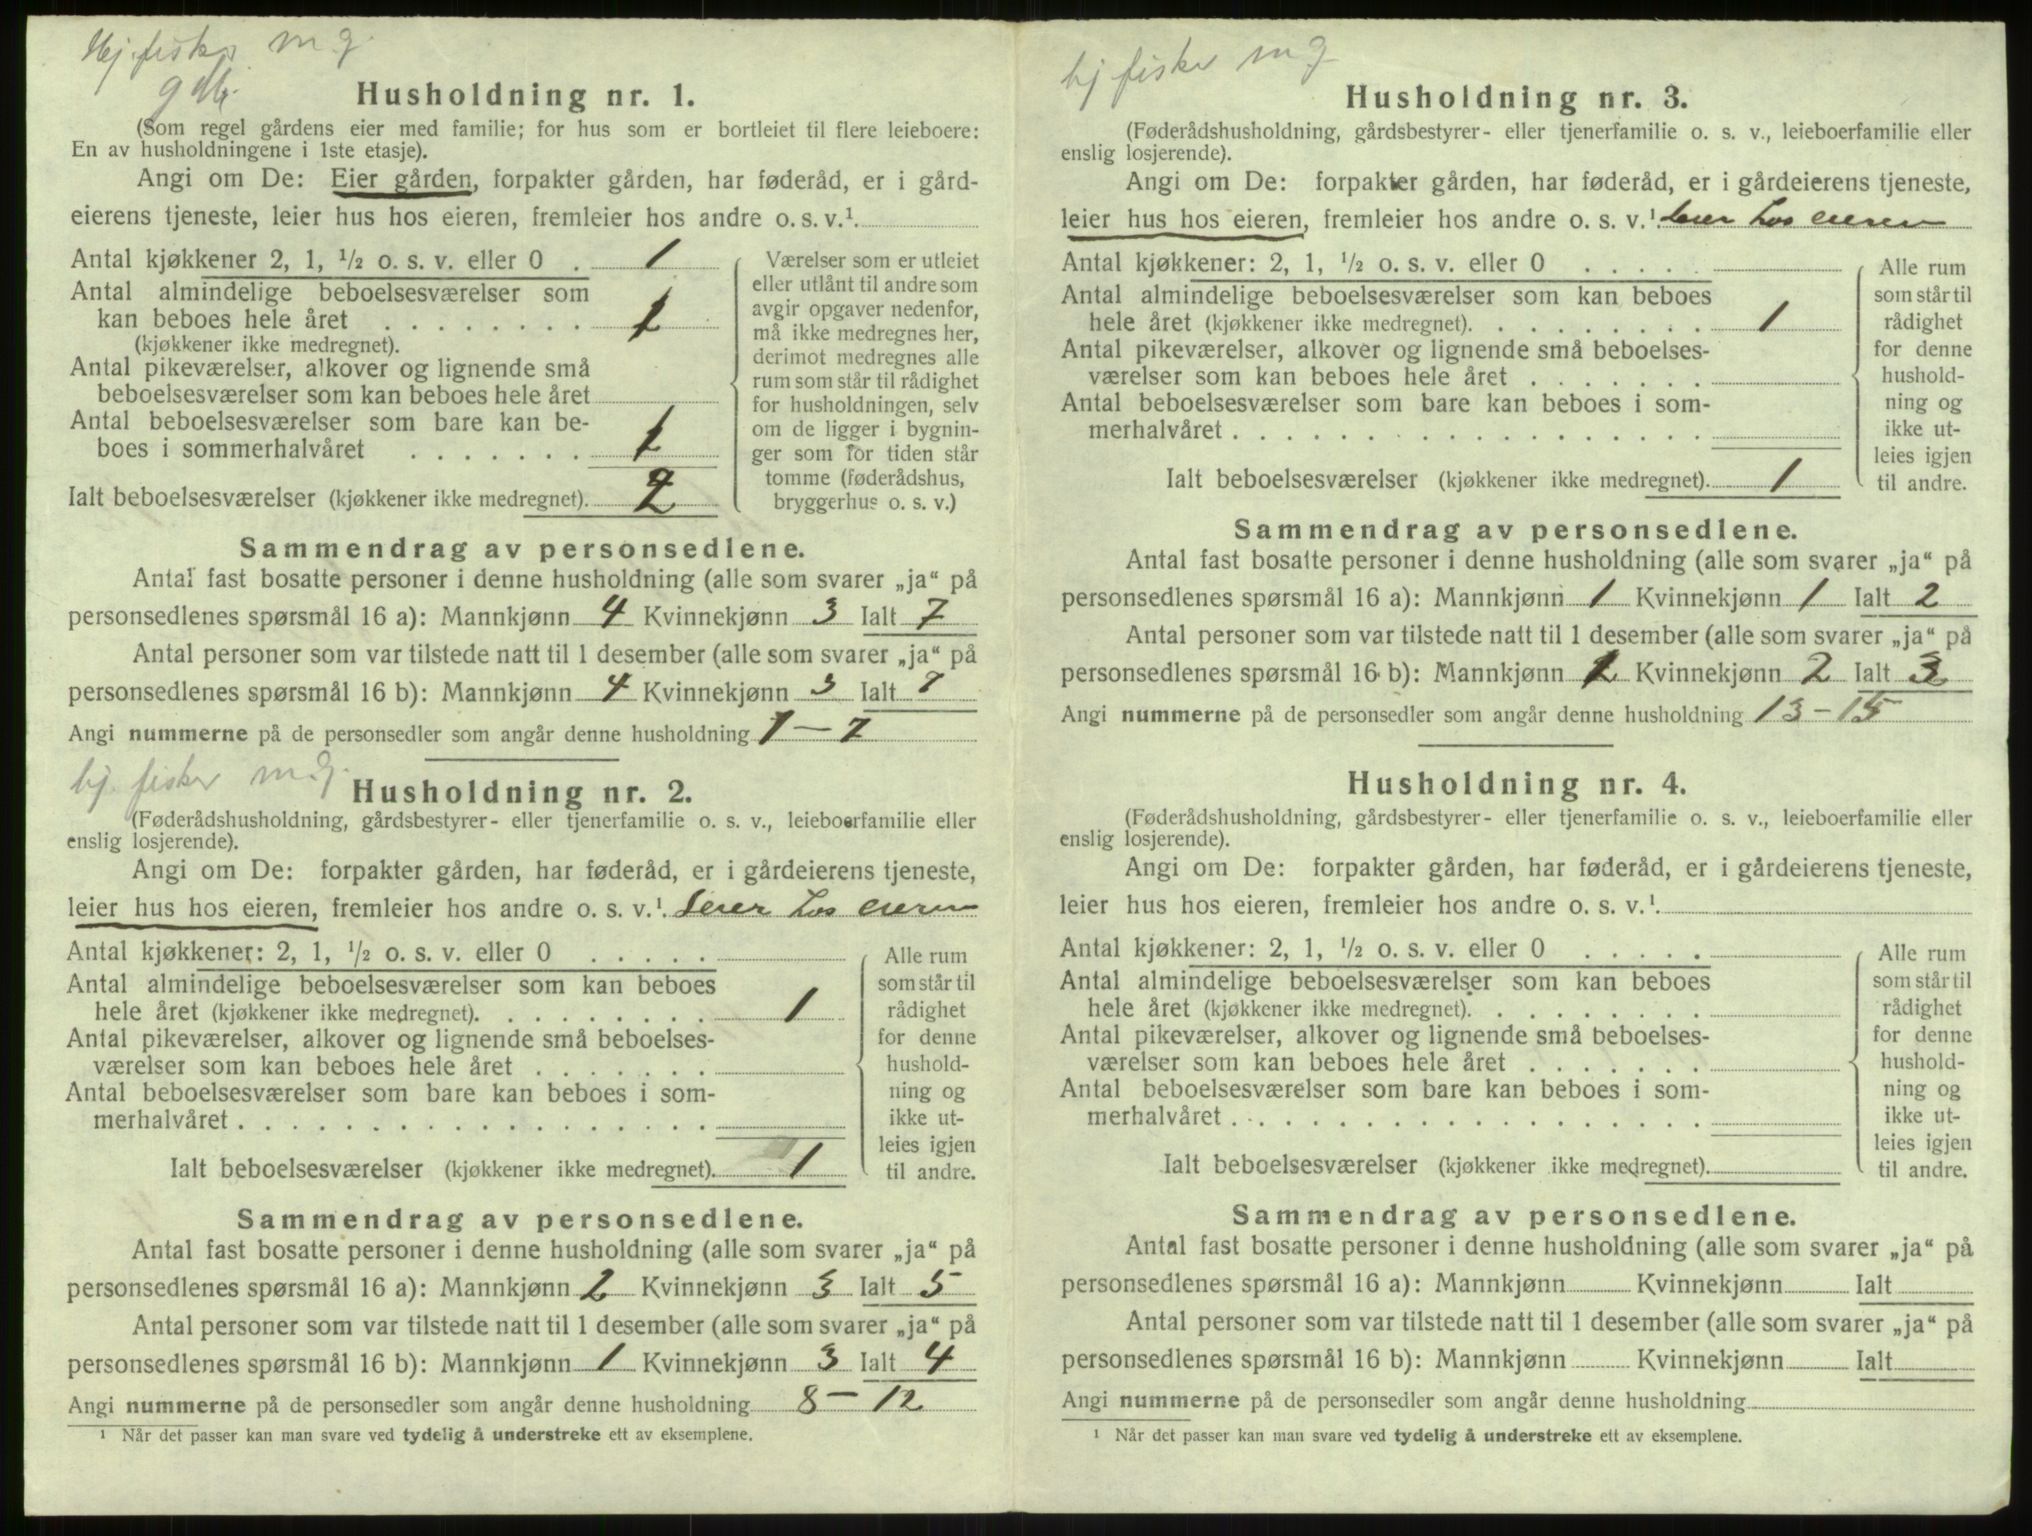 Hj. fisker m. g.
Husholdning nr. 1.
(Som regel gårdens eier med familie; for hus som er bortleiet til flere leieboere:
En av husholdningene i 1ste etasje).
Angi om De: Eier gården, forpakter gården, har føderåd, er i gård-
eierens tjeneste, leier hus hos eieren, fremleier hos andre o. s. v.¹.
Antal kjøkkener 2, 1, ½ o. s. v. eller 0 . 1
Antal almindelige beboelsesværelser som
kan beboes hele året . . . . . . . . 1
(kjøkkener ikke medregnet).
Antal pikeværelser, alkover og lignende små
beboelsesværelser som kan beboes hele året
Antal beboelsesværelser som bare kan be-
boes i sommerhalvåret . . . . . . . 1
Ialt beboelsesværelser (kjøkkener ikke medregnet). 2
Værelser som er utleiet
eller utlånt til andre som
avgir opgaver nedenfor,
må ikke medregnes her,
derimot medregnes alle
rum som står til rådighet
for husholdningen, selv
om de ligger i bygnin-
ger som for tiden står
tomme (føderådshus,
bryggerhus o. s. v.)
Sammendrag av personsedlene.
Antal fast bosatte personer i denne husholdning (alle som svarer „ja“ på
personsedlenes spørsmål 16 a): Mannkjønn 4 Kvinnekjønn 3 Ialt 7
Antal personer som var tilstede natt til 1 desember (alle som svarer „ja“ på
personsedlenes spørsmål 16 b): Mannkjønn 4 Kvinnekjønn 3 Ialt 7
Angi nummerne på de personsedler som angår denne husholdning 1 — 7
hj. fisker m. g.
Husholdning nr. 2.
(Føderådshusholdning, gårdsbestyrer- eller tjenerfamilie o. s. v., leieboerfamilie eller
enslig losjerende).
Angi om De: forpakter gården, har føderåd, er i gårdeierens tjeneste,
leier hus hos eieren, fremleier hos andre o. s. v.¹. Leier hos eieren
Antal kjøkkener: 2, 1, ½ o. s. v. eller 0 . . . . .
Antal almindelige beboelsesværelser som kan beboes
hele året (kjøkkener ikke medregnet). . . . . . . . . 1
Antal pikeværelser, alkover og lignende små beboelses-
værelser som kan beboes hele året . . . . . . .
Antal beboelsesværelser som bare kan beboes i som-
merhalvåret . . . . . . . . . . . . . . . . . .
Ialt beboelsesværelser (kjøkkener ikke medregnet). 1
Alle rum
som står til
rådighet
for denne
hushold-
ning og
ikke ut-
leies igjen
til andre.
Sammendrag av personsedlene.
Antal fast bosatte personer i denne husholdning (alle som svarer „ja“ på
personsedlenes spørsmål 16 a): Mannkjønn 2 Kvinnekjønn 3 Ialt 5
Antal personer som var tilstede natt til 1 desember (alle som svarer „ja“ på
personsedlenes spørsmål 16 b): Mannkjønn 1 Kvinnekjønn 3 Ialt 4
Angi nummerne på de personsedler som angår denne husholdning 8 — 12
¹ Når det passer kan man svare ved tydelig å understreke ett av eksemplene.
hj fisker m g
Husholdning nr. 3.
(Føderådshusholdning, gårdsbestyrer- eller tjenerfamilie o. s. v., leieboerfamilie eller
enslig losjerende).
Angi om De: forpakter gården, har føderåd, er i gårdeierens tjeneste,
leier hus hos eieren, fremleier hos andre o. s. v.¹. Leier hos eieren
Antal kjøkkener: 2, 1, ½ o. s. v. eller 0 . . . . .
Antal almindelige beboelsesværelser som kan beboes
hele året (kjøkkener ikke medregnet). . . . . . . . . 1
Antal pikeværelser, alkover og lignende små beboelses-
værelser som kan beboes hele året . . . . . . .
Antal beboelsesværelser som bare kan beboes i som-
merhalvåret . . . . . . . . . . . . . . . . . .
Ialt beboelsesværelser (kjøkkener ikke medregnet). 1
Alle rum
som står til
rådighet
for denne
hushold-
ning og
ikke ut-
leies igjen
til andre.
Sammendrag av personsedlene.
Antal fast bosatte personer i denne husholdning (alle som svarer „ja“ på
personsedlenes spørsmål 16 a): Mannkjønn 1 Kvinnekjønn 1 Ialt 2
Antal personer som var tilstede natt til 1 desember (alle som svarer „ja“ på
personsedlenes spørsmål 16 b): Mannkjønn 1 Kvinnekjønn 2 Ialt 3
Angi nummerne på de personsedler som angår denne husholdning 13 — 15
Husholdning nr. 4.
(Føderådshusholdning, gårdsbestyrer- eller tjenerfamilie o. s. v., leieboerfamilie eller
enslig losjerende).
Angi om De: forpakter gården, har føderåd, er i gårdeierens tjeneste,
leier hus hos eieren, fremleier hos andre o. s. v.¹.
Antal kjøkkener: 2, 1, ½ o. s. v. eller 0 . . . . .
Antal almindelige beboelsesværelser som kan beboes
hele året (kjøkkener ikke medregnet). . . . . . . . .
Antal pikeværelser, alkover og lignende små beboelses-
værelser som kan beboes hele året . . . . . . .
Antal beboelsesværelser som bare kan beboes i som-
merhalvåret . . . . . . . . . . . . . . . . . .
Ialt beboelsesværelser (kjøkkener ikke medregnet).
Alle rum
som står til
rådighet
for denne
hushold-
ning og
ikke ut-
leies igjen
til andre.
Sammendrag av personsedlene.
Antal fast bosatte personer i denne husholdning (alle som svarer „ja“ på
personsedlenes spørsmål 16 a): Mannkjønn Kvinnekjønn Ialt
Antal personer som var tilstede natt til 1 desember (alle som svarer „ja“ på
personsedlenes spørsmål 16 b): Mannkjønn Kvinnekjønn Ialt
Angi nummerne på de personsedler som angår denne husholdning
¹ Når det passer kan man svare ved tydelig å understreke ett av eksemplene.